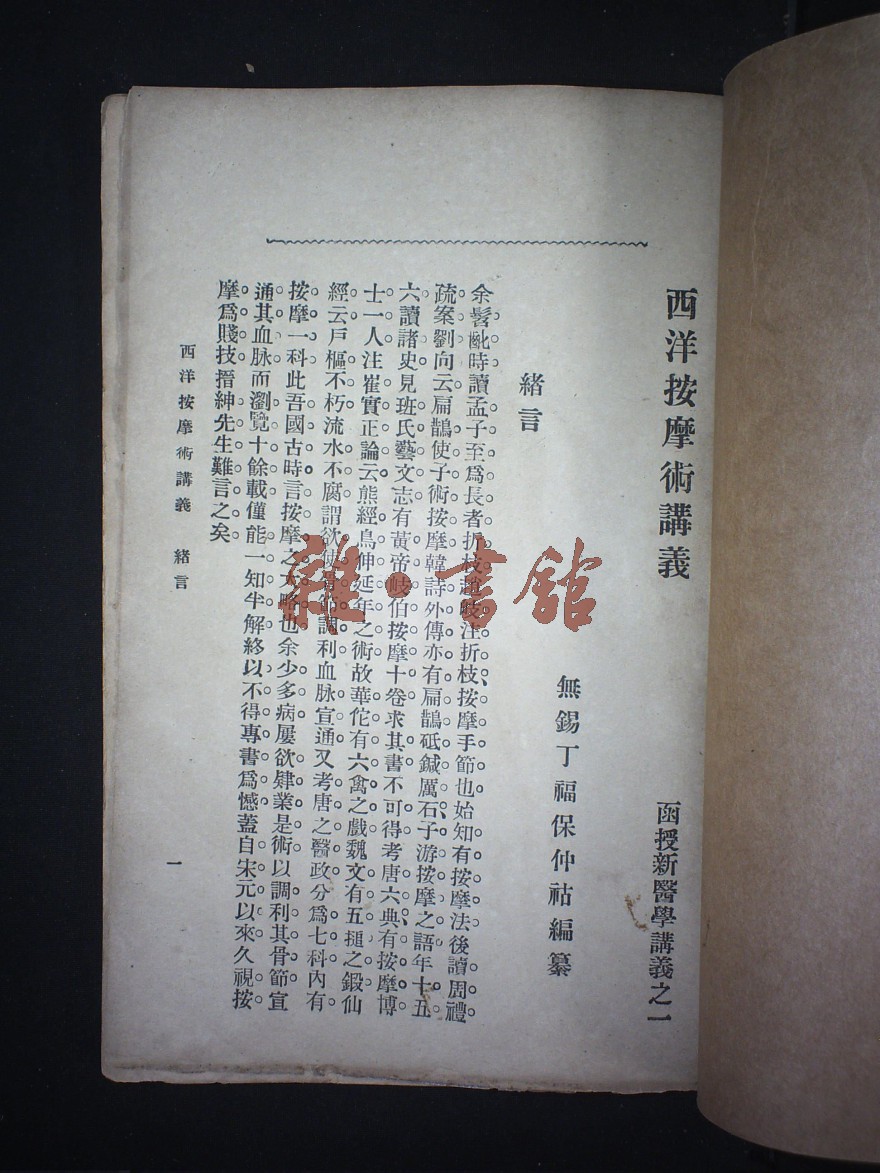 西洋按摩術講義
函授新醫學講義之一
無錫丁福保仲祜編纂
緒言
余髫齔時讀孟子至爲長者折枝趙岐注折枝按摩手節也始知有按摩法後讀周禮
疏案劉向云扁鵲使子術按摩韓詩外傳亦有扁鵲砥鍼厲石子游按摩之語年十五
六讀諸史見班氏藝文志有黃帝岐伯按摩十卷求其書不可得考唐六典有按摩博
士一人注崔實正論云熊經鳥伸延年之術故華佗有六禽之戲魏文有五搥之鍛仙
經云戶樞不朽流水不腐謂欲使骨節調利血脉宣通又考唐之醫政分爲七科內有
按摩一科此吾國古時言按摩之大略也余少多病屢欲肄業是術以調利其骨節宣
通其血脉而瀏覽十餘載僅能一知半解終以不得專書爲憾蓋自宋元以來久視按
摩爲賤技搢紳先生難言之矣
西洋按摩術講義 緒言
一
雜·書館